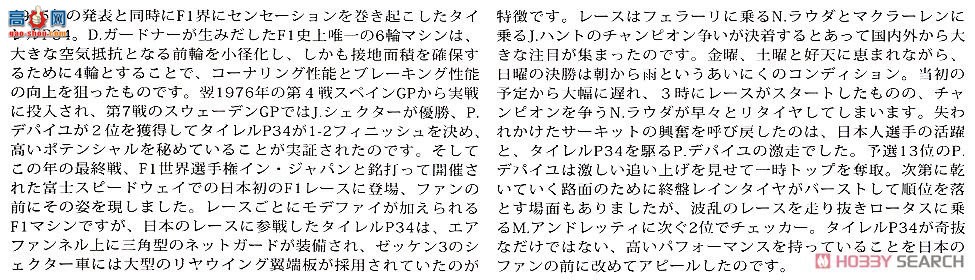 の発表と同時にF1界にセンセーションを巻き起こしたタイ
D.ガードナーが生みだしたF1史上唯一の6輪マシンは、
大きな空気抵抗となる前輪を小径化し、しかも接地面積を確保す
るために4輪とすることで、コーナリング性能とブレーキング性能
の向上を狙ったものです。翌1976年の第４戦スペインGPから実戦
に投入され、第7戦のスウェーデンGPではJ.シェクターが優勝、P.
デパイユが２位を獲得してタイレルP34が1-2フィニッシュを決め、
高いポテンシャルを秘めていることが実証されたのです。そして
この年の最終戦、F1世界選手権イン・ジャパンと銘打って開催さ
れた富士スピードウェイでの日本初のF1レースに登場、ファンの
前にその姿を現しました。レースごとにモデファイが加えられる
F1マシンですが、日本のレースに参戦したタイレルP34は、エア
ファンネル上に三角型のネットガードが装備され、ゼッケン3のシ
ェクター車には大型のリヤウイング翼端板が採用されていたのが
特徴です。レースはフェラーリに乗るN.ラウダとマクラーレンに
乗るJ.ハントのチャンピオン争いが決着するとあって国内外から大
きな注目が集まったのです。金曜、土曜と好天に恵まれながら、
日曜の決勝は朝から雨というあいにくのコンディション。当初の
予定から大幅に遅れ、３時にレースがスタートしたものの、チャ
ンピオンを争うN.ラウダが早々とリタイヤしてしまいます。失わ
れかけたサーキットの興奮を呼び戻したのは、日本人選手の活躍
と、タイレルP34を駆るP.デパイユの激走でした。予選13位のP.
デパイユは激しい追い上げを見せて一時トップを奪取。次第に乾
いていく路面のために終盤レインタイヤがバーストして順位を落
とす場面もありましたが、波乱のレースを走り抜きロータスに乗
るM.アンドレッティに次ぐ2位でチェッカー。タイレルP34が奇抜
なだけではない、高いパフォーマンスを持っていることを日本の
ファンの前に改めてアピールしたのです。
HOBBY SEARCH